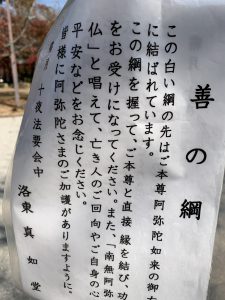 善の綱
この白い綱の先はご本尊阿弥陀如来の御
に結ばれています。
この綱を握って、ご本尊と直接縁を結び、功
をお受けになってください。また、「南無阿弥
仏」と唱えて、亡き人のご回向やご自身の心
平安などをお念じください。
皆様に阿弥陀さまのご加護がありますように。
十夜法要会中 洛東真如堂